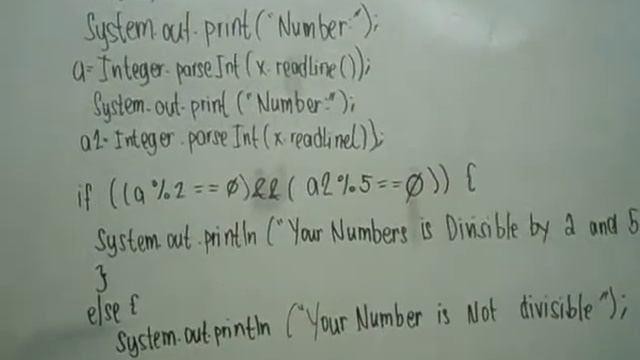 System.out.print("Number:");
a=Integer.parseInt(x.readline());
System.out.print("Number:");
a2=Integer.parseInt(x.readline());
if ((a%2==0)&&(a2%5==0)) {
System.out.println ("Your Numbers is Divisible by 2 and 5
}
else {
System.out.println ("Your Number is Not divisible");